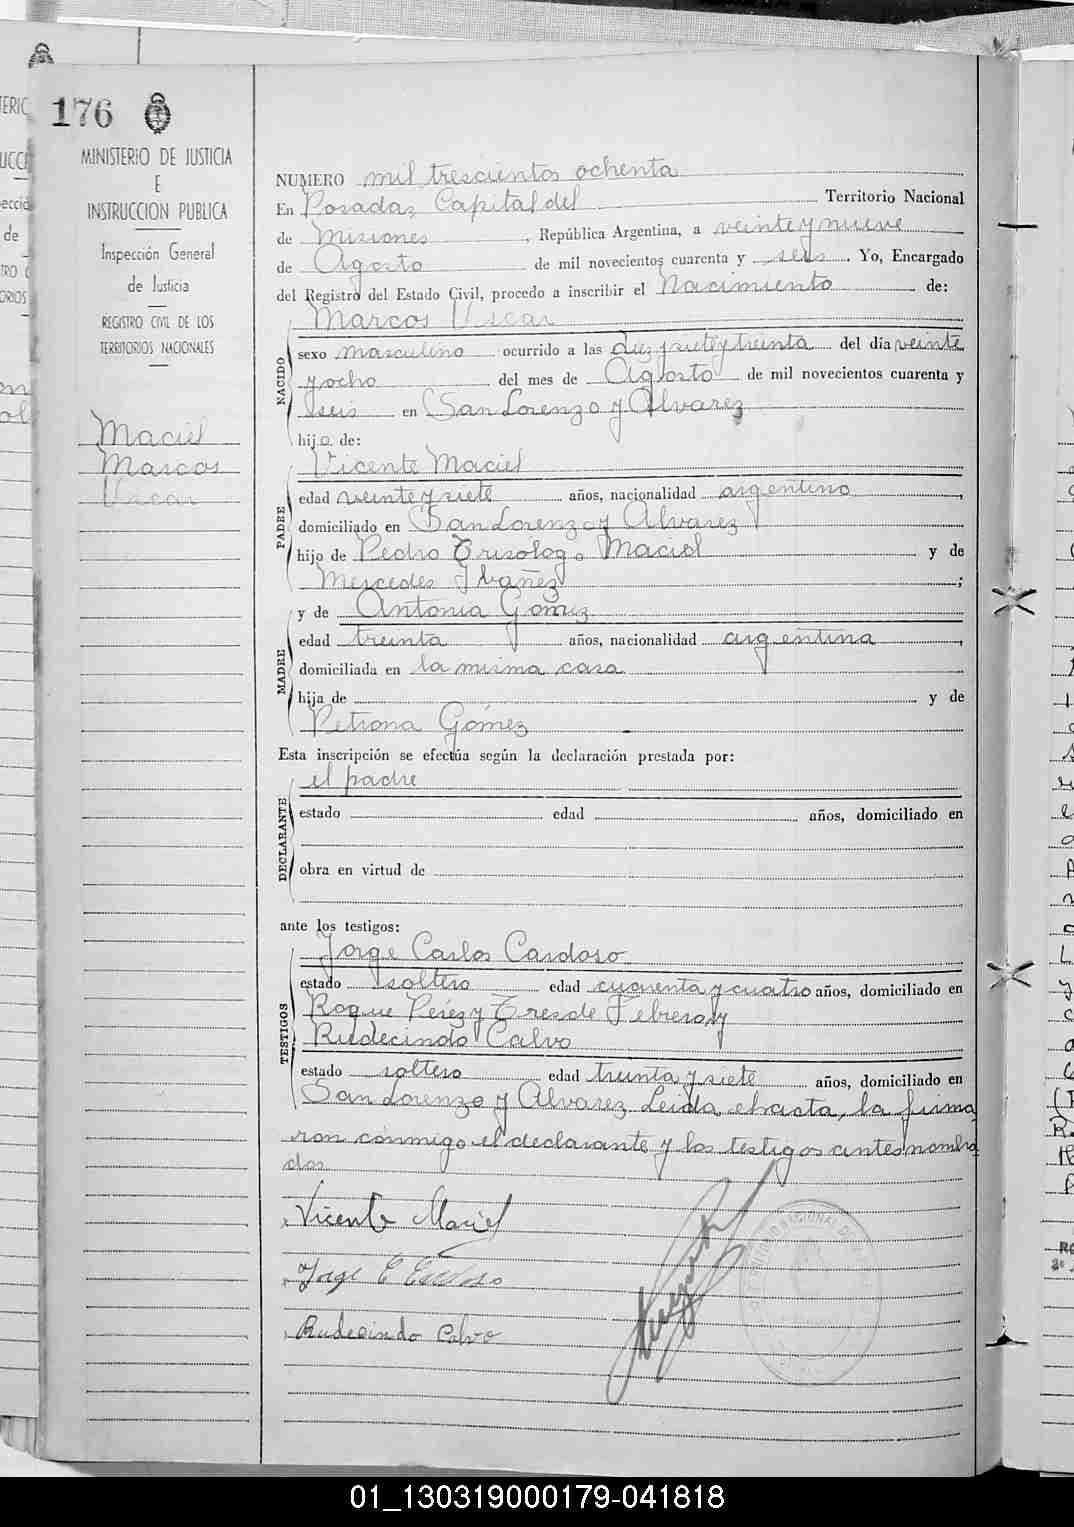 176
MINISTERIO DE JUSTICIA
E
INSTRUCCION PUBLICA
Inspección General
de Justicia
REGISTRO CIVIL DE LOS
TERRITORIOS NACIONALES
Maciel
Marcos
Uscar
NUMERO mil trescientos ochenta
En Posadas, Capital del Territorio Nacional
de Misiones, República Argentina, a veinte y nueve
de Agosto de mil novecientos cuarenta y seis. Yo, Encargado
del Registro del Estado Civil, procedo a inscribir el Nacimiento de:
Marcos Uscar
NACIDO
sexo masculino ocurrido a las diez y siete y treinta del día veinte
y ocho del mes de Agosto de mil novecientos cuarenta y
seis en San Lorenzo y Alvarez
hijo de:
Vicente Maciel
PADRE
edad veinte y siete años, nacionalidad argentino,
domiciliado en San Lorenzo y Alvarez
hijo de Pedro Crisólogo Maciel y de
Mercedes Ibañez;
y de Antonia Gómez
MADRE
edad treinta años, nacionalidad argentina,
domiciliada en la misma casa
hija de y de
Petrona Gómez
Esta inscripción se efectúa según la declaración prestada por:
el padre
DECLARANTE
estado edad años, domiciliado en
obra en virtud de
ante los testigos:
Jorge Carlos Cardoso
TESTIGOS
estado soltero edad cuarenta y cuatro años, domiciliado en
Roque Pérez y Tres de Febrero, y
Rudecindo Calvo
estado soltero edad treinta y siete años, domiciliado en
San Lorenzo y Alvarez. Leida el acta, la firma
ron conmigo el declarante y los testigos antes nombra
dos
Vicente Maciel
Jorge C Cardoso
Rudecindo Calvo
01_130319000179-041818